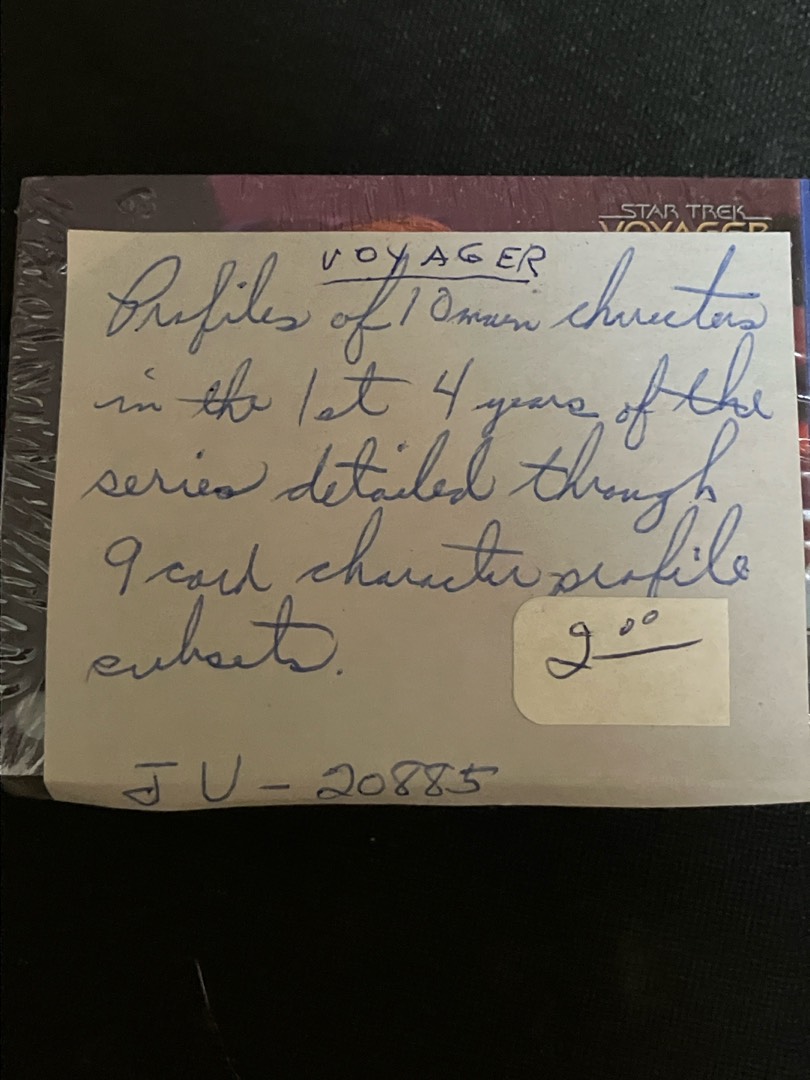 STAR TREK
VOYAGER
VOYAGER
Profiles of 10 main charecters
in the 1st 4 years of the
series detailed through
9 card character profile
subsets.
2.00
JU - 20885